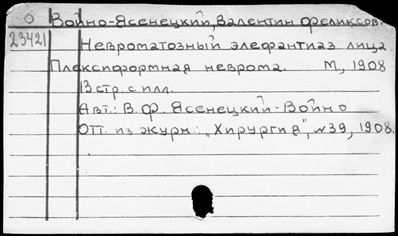 О Войно-Ясенецкий, Валентин Феликсов.
23421 Невроматозный элефантиаз лица.
Плексиформная неврома. М, 1908
13 стр. с илл.
Авт.: В. Ф. Ясенецкий-Войно
Отт. из журн.: „Хирургия", №39, 1908.